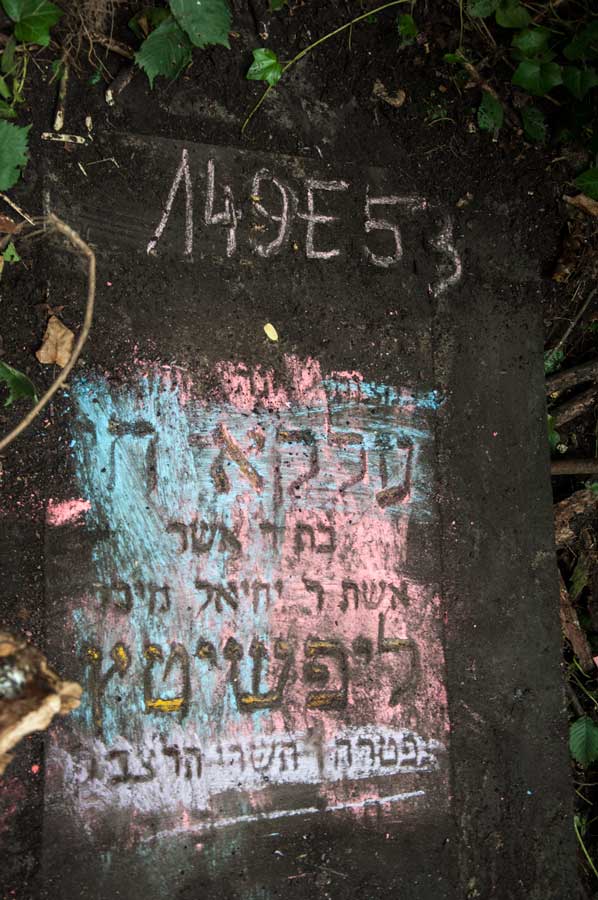 149E5 3
עלקא
בת ר אשר
אשת ר יחיאל מיכל
ליפשיטץ
נפטרה תשרי תרצב